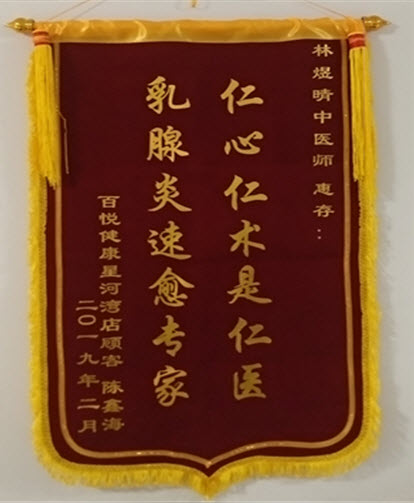 林煜晴中医师 惠存：
仁心仁术是仁医
乳腺炎速愈专家
百悦健康星河湾店顾客 陈鑫海
二〇一九年二月